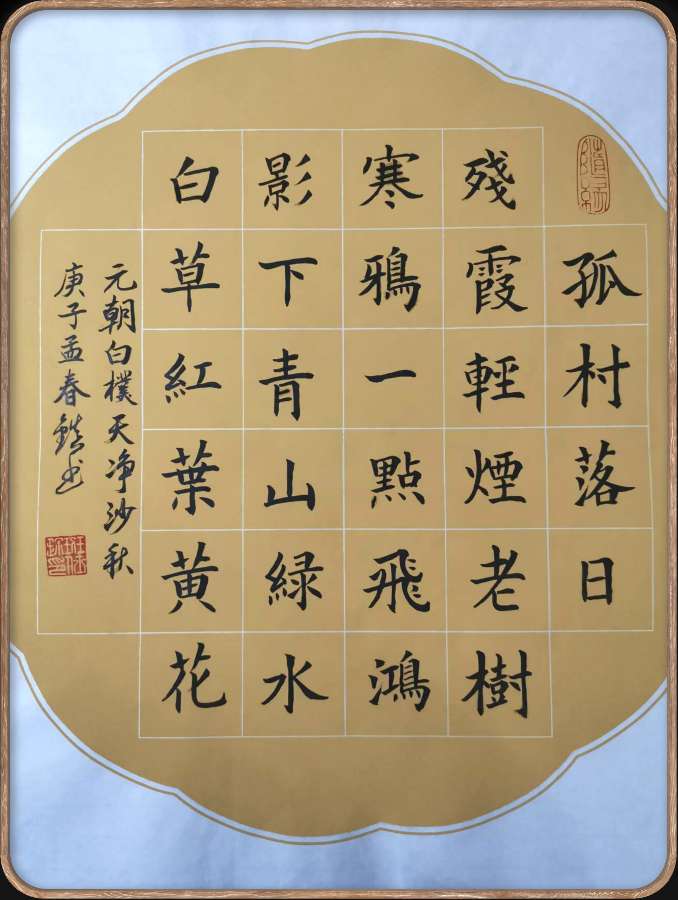 孤村落日
殘霞輕煙老樹
寒鴉一點飛鴻
影下青山緑水
白草紅葉黄花
元朝白樸天净沙秋
庚子孟春鐵书